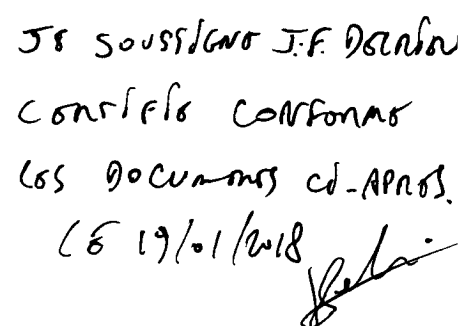 JE SOUSSIGNE J.F. 
CERTIFIE CONFORME
LES DOCUMENTS CI-APRES.
LE 19/01/2018